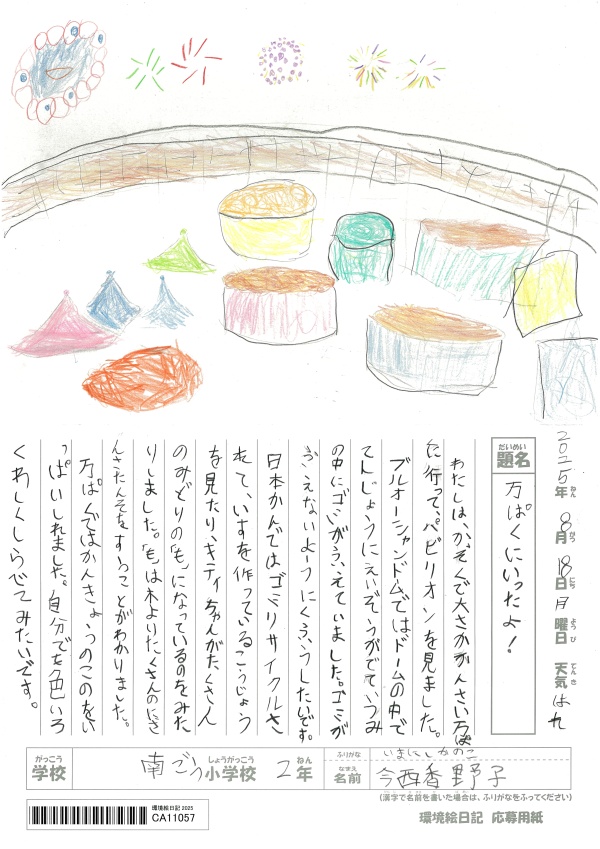 2025年 8月 18日 月曜日 天気 はれ
ねん がつ にち ようび てんき
だいめい
題名
万ぱくにいったよ!
わたしは、かぞくで大さかかんさい万ぱく
に行って、パビリオンを見ました。
ブルオーシャンドームではドームの中で
てんじょうにえいぞうがでていうみ
の中にゴミがふえていました。ゴミが
ふえないようにくふうしたいです。
日本かんではゴミリサイクルさ
れて、いすを作っているこうじょう
を見たり、キティちゃんがたくさん
のみどりの「も」になっているのをみた
りしました。「も」は木よりたくさんのにさ
んさたんそをすうことがわかりました。
万ぱくではかんきょうのこのをい
っぱいしれました。自分でも色いろ
くわしくしらべてみたいです。
がっこう
学校
南ごう小学校 2年
しょうがっこう ねん
ふりがな いまにしかのこ
なまえ
名前 今西香野子
(漢字で名前を書いた場合は、ふりがなをふってください)
環境絵日記 2025
CA11057
環境絵日記 応募用紙